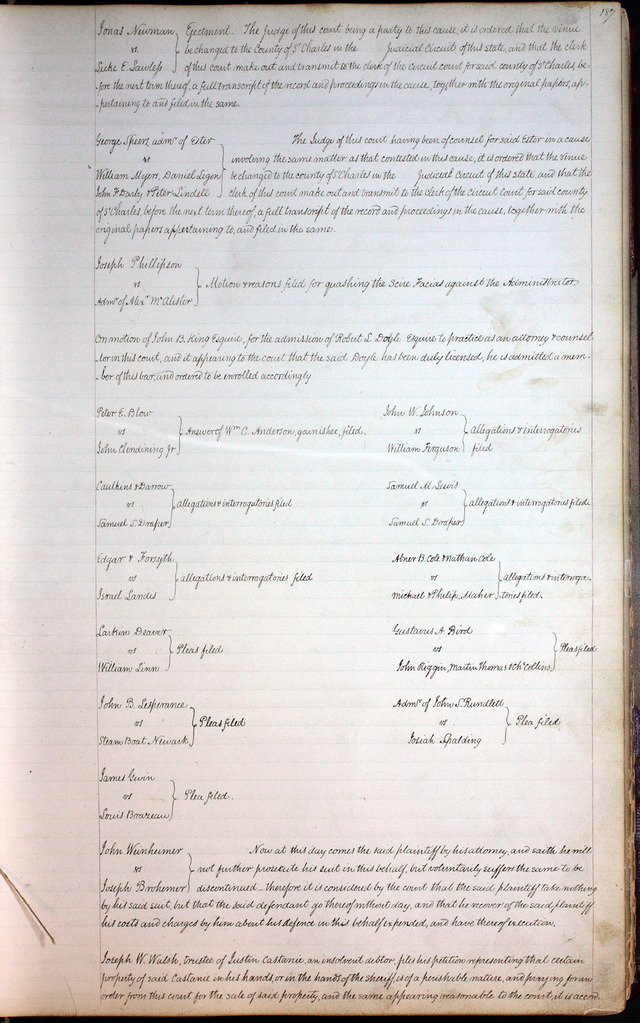 187
Jonas Newman } Ejectment. The Judge of this court being a party to this cause, it is ordered that the venue
vs } be changed to the County of St Charles in the Judicial Circuit of this state, and that the clerk
Luke E. Lawless } of this court make out and transmit to the clerk of the circuit court for said county of St Charles, be-
fore the next term thereof, a full transcript of the record and proceedings in the cause, together with the original papers, ap-
pertaining to and filed in the same.
George Speers, admr of Ester } The Judge of this court having been of counsel for said Ester in a cause
vs } involving the same matter as that contested in this cause, it is ordered that the venue
William Myers, Daniel } be changed to the county of St Charles in the Judicial Circuit of this state, and that the
John F Darby & Peter Lindell } clerk of this court make out and transmit to the clerk of the Circuit Court for said county
of St Charles, before the next term thereof, a full transcript of the record and proceedings in the cause, together with the
original papers appertaining to, and filed in the same.
Joseph Phillipson
vs } Motion & reasons filed for quashing the Scire Facias against the Administrator.
Admr of Alexr McAlister
On motion of John B. King Esquire, for the admission of Robert L. Doyle Esquire to practice as an attorney & counsel
lor in this court, and it appearing to the court that the said Doyle has been duly licensed, he is admitted a mem-
ber of this bar, and ordered to be enrolled accordingly
Peter E. Blow
vs } Answer of Wm C. Anderson, garnishee, filed.
John Clendining Jr
John W. Johnson
vs } allegations & interrogatories
William Ferguson } filed
Caulkins & Darrow
vs } allegations & interrogatories filed
Samuel S. Draper
Samuel M. Lewis
vs } allegations & interrogatories filed.
Samuel S. Draper
Edgar & Forsyth
vs } allegations & interrogatories filed
Israel Landes
Abner B. Cole & Nathan Cole
vs } allegations & interroga-
Michael & Philip Maher } tories filed.
Larkin Deaver
vs } Pleas filed
William Linn
Gustavus A. Bird
vs } Pleas filed
John Riggin, Martin Thomas & Ch Collins
John B. Lesperance
vs } Pleas filed
Steam Boat Newark
Admr of John S. Rundlett
vs } Plea filed
Josiah Spalding
James Gwin
vs } Plea filed.
Louis Brazeau
John Weinheimer } Now at this day comes the said plaintiff by his attorney, and saith he will
vs } not further prosecute his suit in this behalf, but voluntarily suffers the same to be
Joseph Brohemer } discontinued – therefore it is considered by the court that the said plaintiff take nothing
by his said suit, but that the said defendant go thereof without day, and that he recover of the said plaintiff
his costs and charges by him about his defence in this behalf expended, and have thereof execution.
Joseph W. Walsh, trustee of Justin Castanie, an insolvent debtor, files his petition representing that certain
property of said Castanie in his hands, or in the hands of the sheriff, is of a perishable nature, and praying for an
order from this court for the sale of said property, and the same appearing reasonable to the court, it is accord